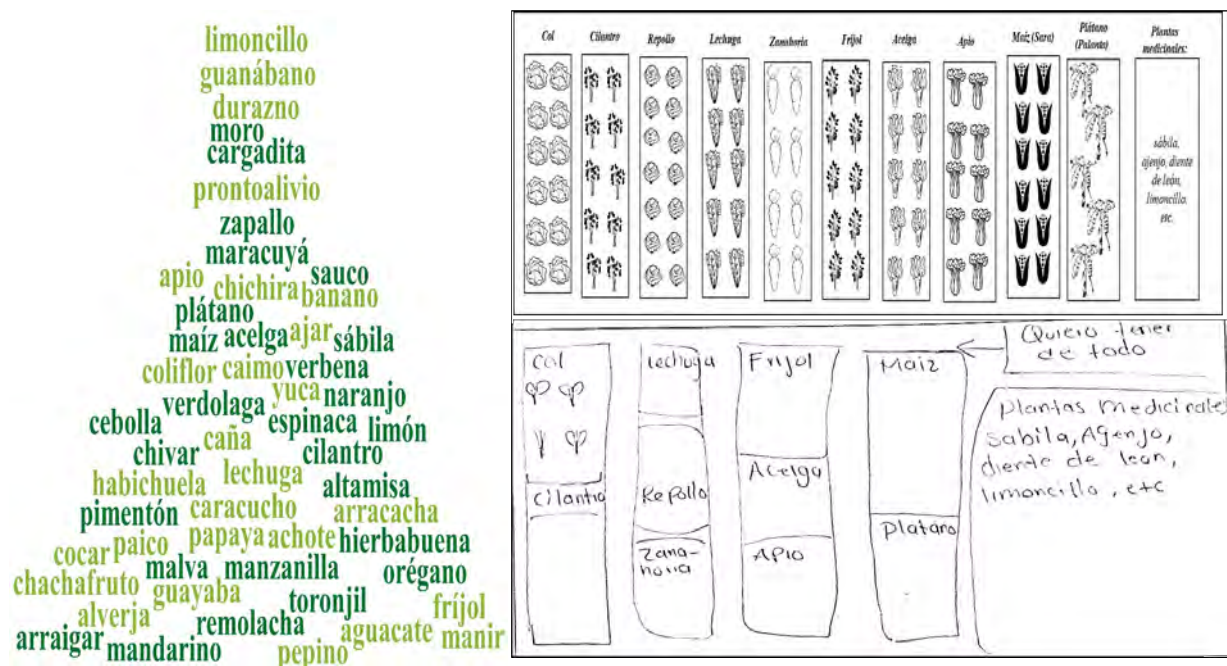 limoncillo
guanábano
durazno
moro
cargadita
prontoalivio
zapallo
maracuyá
apio chichira sauco
banano
plátano
maíz acelga ajar sábila
coliflor caimo verbena
yuca naranjo
cebolla verdolaga espinaca limón
chivar caña cilantro
habichuela lechuga altamisa
pimentón caracucho arracacha
cocar paico papaya achote hierbabuena
chachafruto malva manzanilla orégano
guayaba
alverja toronjil fríjol
arraigar remolacha aguacate manir
mandarino pepino
Col Cilantro Repollo Lechuga Zanahoria Fríjol Acelga Apio Maíz (Sara) Plátano (Palanta) Plantas medicinales:
sábila,
ajenjo, diente
de león,
limoncillo,
etc.
Quiero tener
de todo
Col
Cilantro
Lechuga
Repollo
Zana-
horia
Frijol
Acelga
Apio
Maiz
Platano
Plantas medicinales
Sabila, Agenjo,
diente de leon,
limoncillo, etc